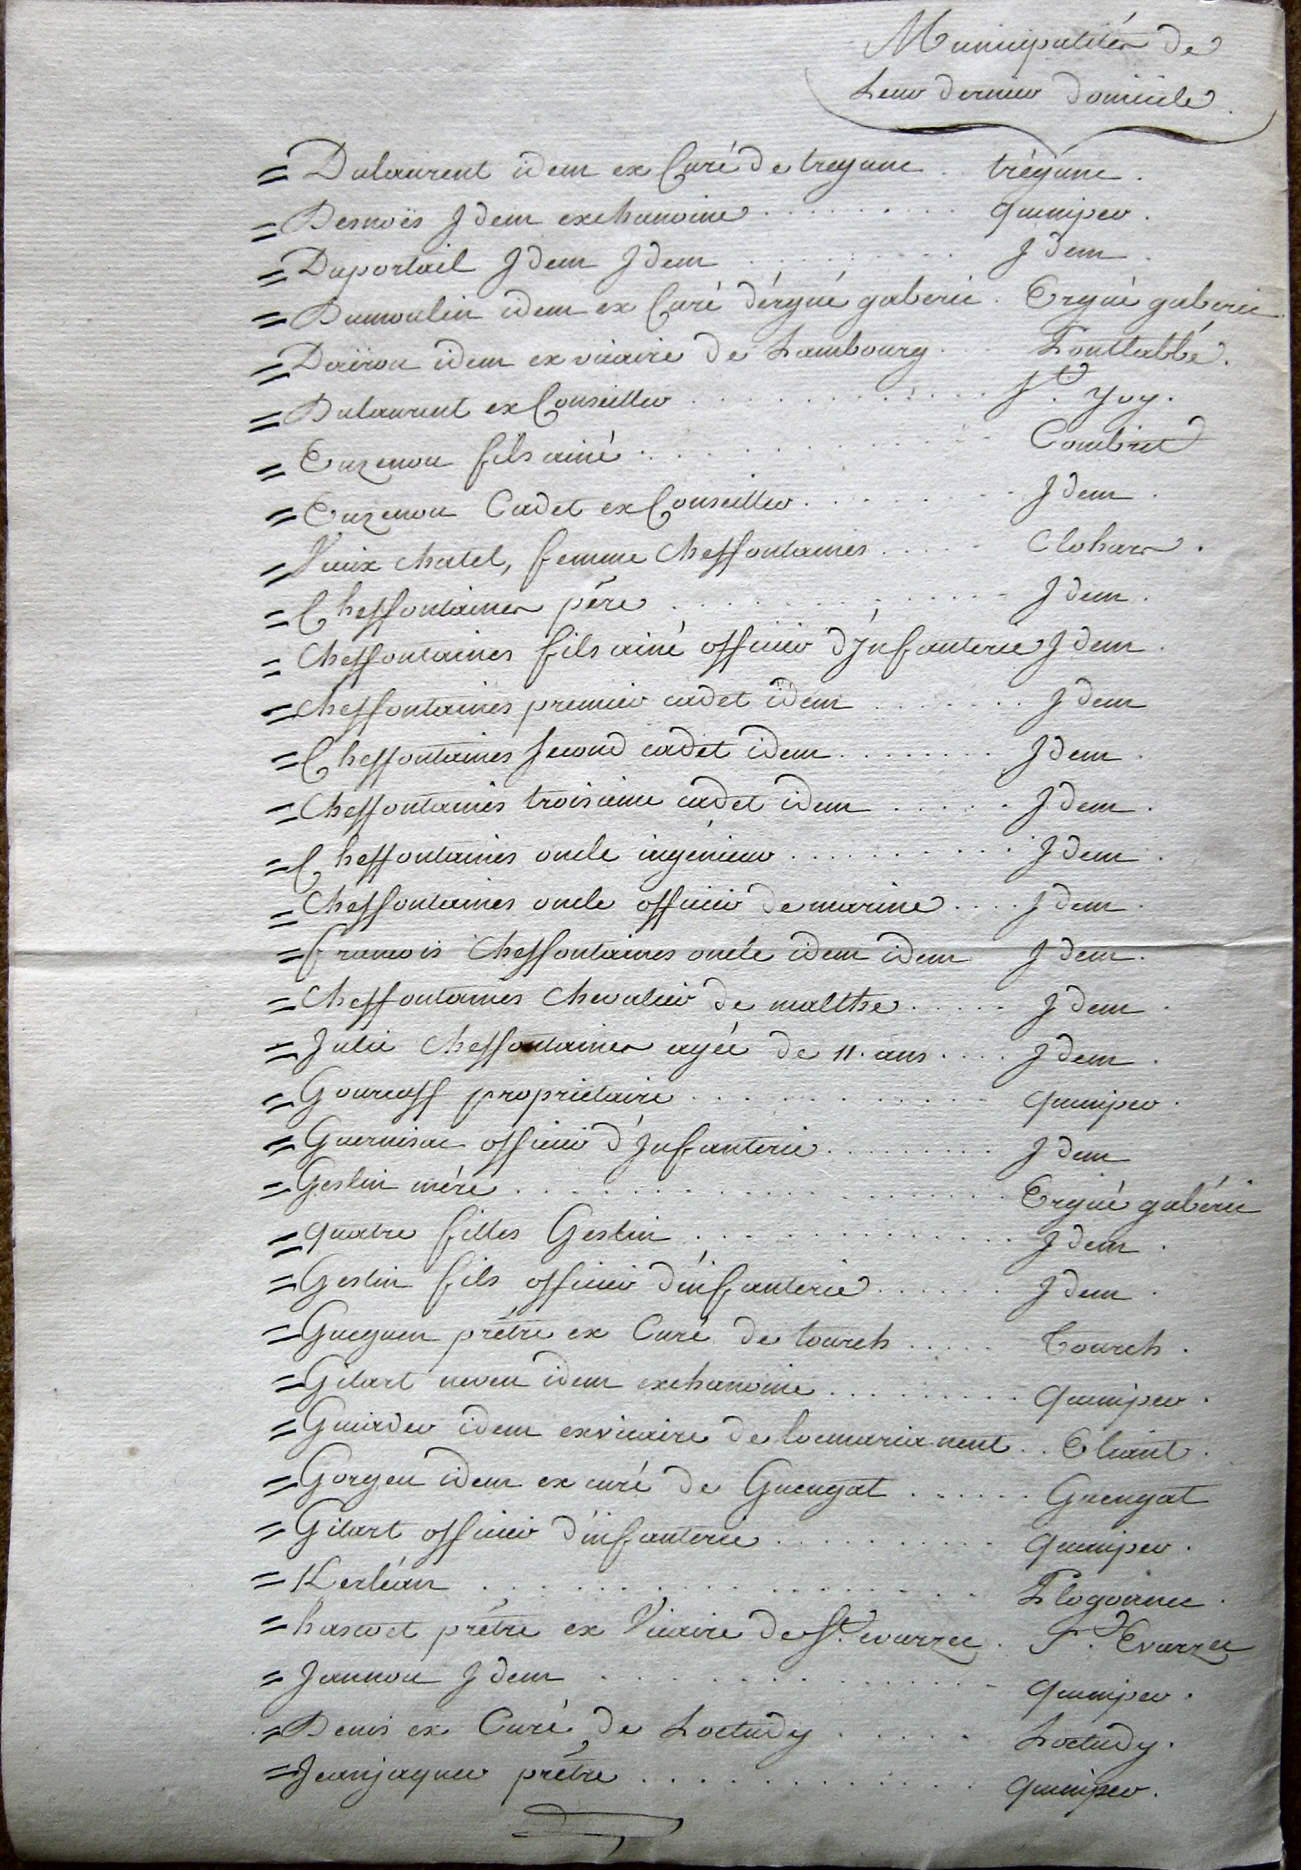 Municipalités de
Leur dernier domicile
= Dulaurent idem ex Curé de tregunc . trégunc .
= Desnoës Jdem exchanoine . . . . . . . . quimper .
= Duportail Jdem Jdem . . . . . . . . Jdem .
= Dumoulin idem ex Curé d'érgué gaberic . Ergué gaberic
= Doirou idem ex vicaire de Lambourg . Ponttabbé .
= Dulaurent ex Conseiller . . . . . . . . St. Yvy .
= Euzenou fils ainé . . . . . . . . Combrit
= Euzenou Cadet ex Conseiller . . . . . . . Jdem .
= Vieux chatel, femme Cheffontaines . . . . . Clohars .
= Cheffontaines père . . . . . . . . . . Jdem .
= Cheffontaines fils ainé officier d'Jnfanterie Jdem .
= Cheffontaines premier cadet idem . . . . . . . Jdem
= Cheffontaines Second cadet idem . . . . . . . . Jdem .
= Cheffontaines troisieme cadet idem . . . . . Jdem .
= Cheffontaines oncle ingénieur . . . . . . . . . . Jdem .
= Cheffontaines oncle officier de marine . . . . Jdem .
= francois Cheffontaines oncle idem idem Jdem .
= Cheffontaines Chevalier de malthe . . . . . Jdem .
= Julie Cheffontaines agée de 11. ans . . . . Jdem .
= Gourcuff proprietaire . . . . . . . . . . . . quimper .
= Guernisac officier d'Jnfanterie . . . . . . . . . Jdem
= Geslin mére . . . . . . . . . . . . . . . Ergué gabéric
= quatre filles Geslin . . . . . . . . . . . . . . Jdem .
= Geslin fils officier d'infanterie . . . . . . Jdem .
= Gueguen prêtre ex Curé de tourch . . . . . Tourch .
= Gilart neveu idem exchanoine . . . . . . . . . quimper .
= Guirder idem exvicaire de locmaria nent . . Eliant .
= Gorgeu idem ex curé de Guengat . . . . . . Grengat
= Gilart officier d'infanterie . . . . . . . . . . quimper .
= Kerléan . . . . . . . . . . . . . . . Plogonnec .
= hascoet prêtre ex Vicaire de St. evarzec . St. Evarzec
= Jannou Jdem . . . . . . . . . . . . . quimper .
= Denis ex Curé de Loctudy . . . . . . Loctudy .
= Jeanjaques prêtre . . . . . . . . . . . . quimper .